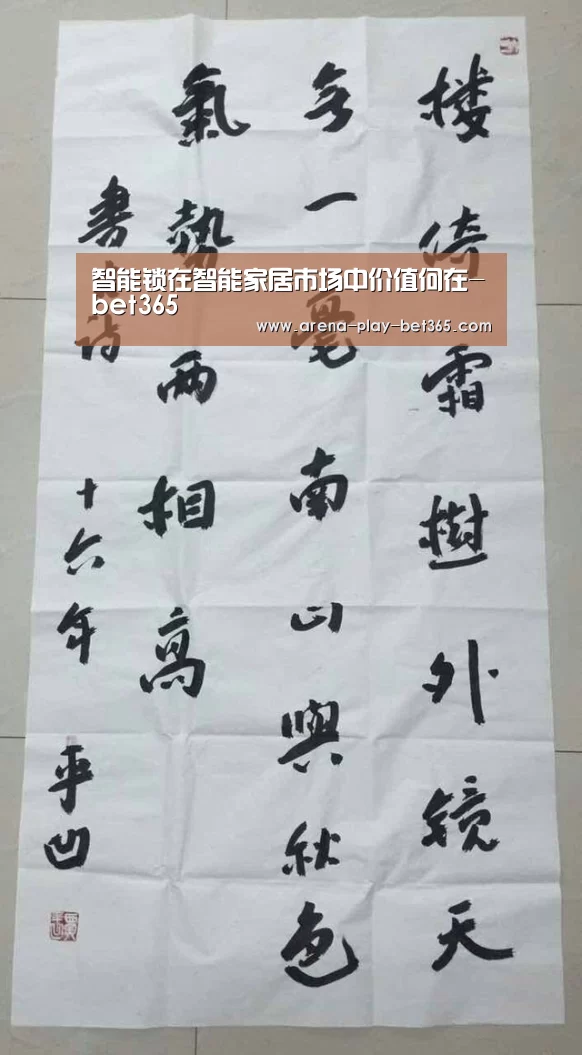 楼倚霜樹外镜天
無一毫南山與秋色
氣勢两相高
書詩十六年 平凹
智能锁在智能家居市场中价值何在-
bet365
www.arena-play-bet365.com